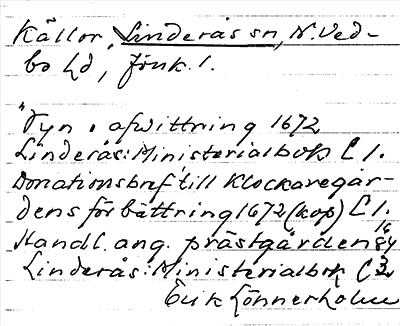 Källor. Linderås sn, N. Ved-
bo hd, Jönk. l.
"Syn o. afwittring 1672
Linderås: Ministerialbok C 1.
Donationsbref till Klockaregår-
dens förbättring 1672 (kop) C 1.
Handl. ang. prästgården 1684
Linderås: Ministerialbok C 3
Erik Lönnerholm